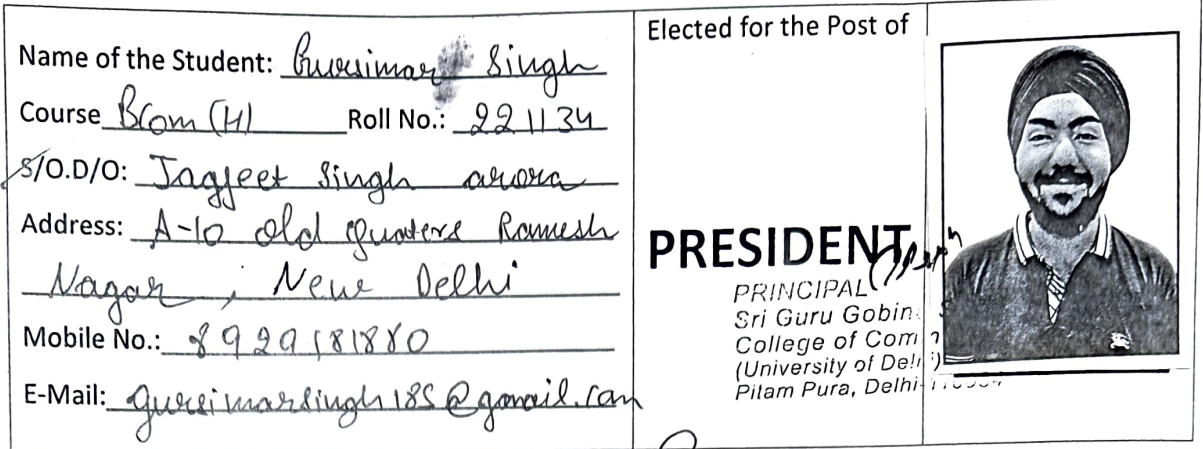 Name of the Student: Gursimar Singh
Course BCom (H) Roll No.: 221134
S/O.D/O: Jagjeet Singh arora
Address: A-10 old quaters Ramesh
Nagar, New Delhi
Mobile No.: 8929181880
E-Mail: gursimarsingh185@gmail.com
Elected for the Post of
PRESIDENT
PRINCIPAL
Sri Guru Gobin
College of Com
(University of Delhi)
Pitam Pura, Delhi-